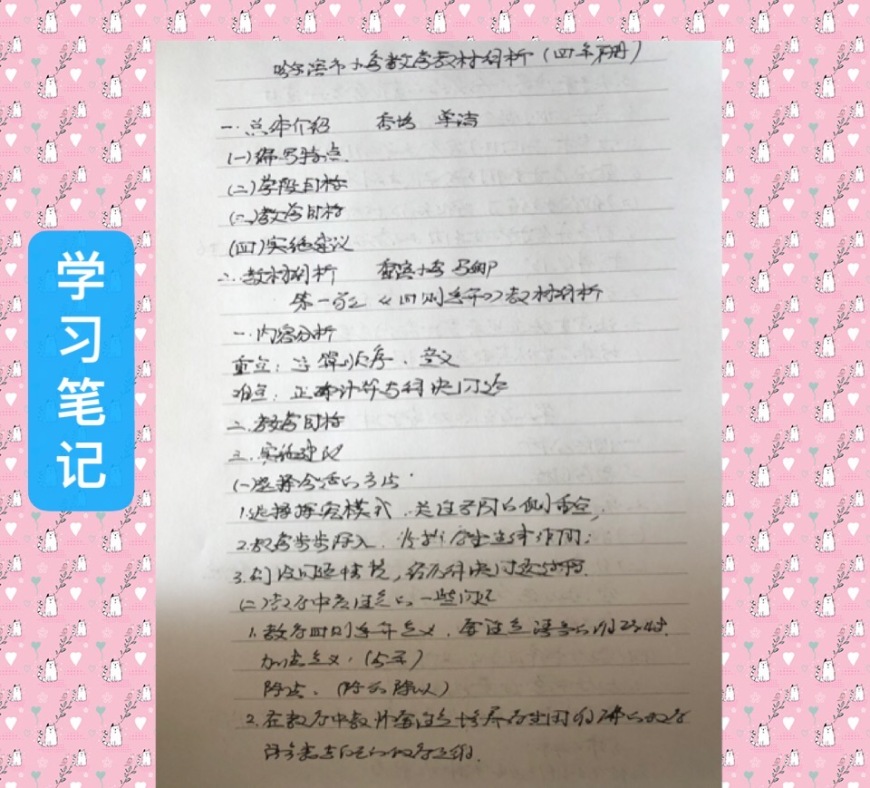 学习笔记
哈尔滨市小学数学教材分析（四年下册）
一.总体介绍
（一）编写特点.
（二）学段目标
（三）教学目标
（四）实施建议
二.教材分析
第一单元《四则运算》教材分析
一.内容分析
重点：运算顺序、意义
难点：正确计算与解决问题
二.教学目标
三.实施建议
（一）选择合适的方法.
1.选择探究模式.关注不同的侧重点,
2.教学步步深入.发挥学生主体作用;
3.创设问题情境,
（二）教学中应注意的一些问题
1.教学四则运算意义.要注意语言的
加法意义.
除法.（除以）
2.在教学中教师要注意培养学生用